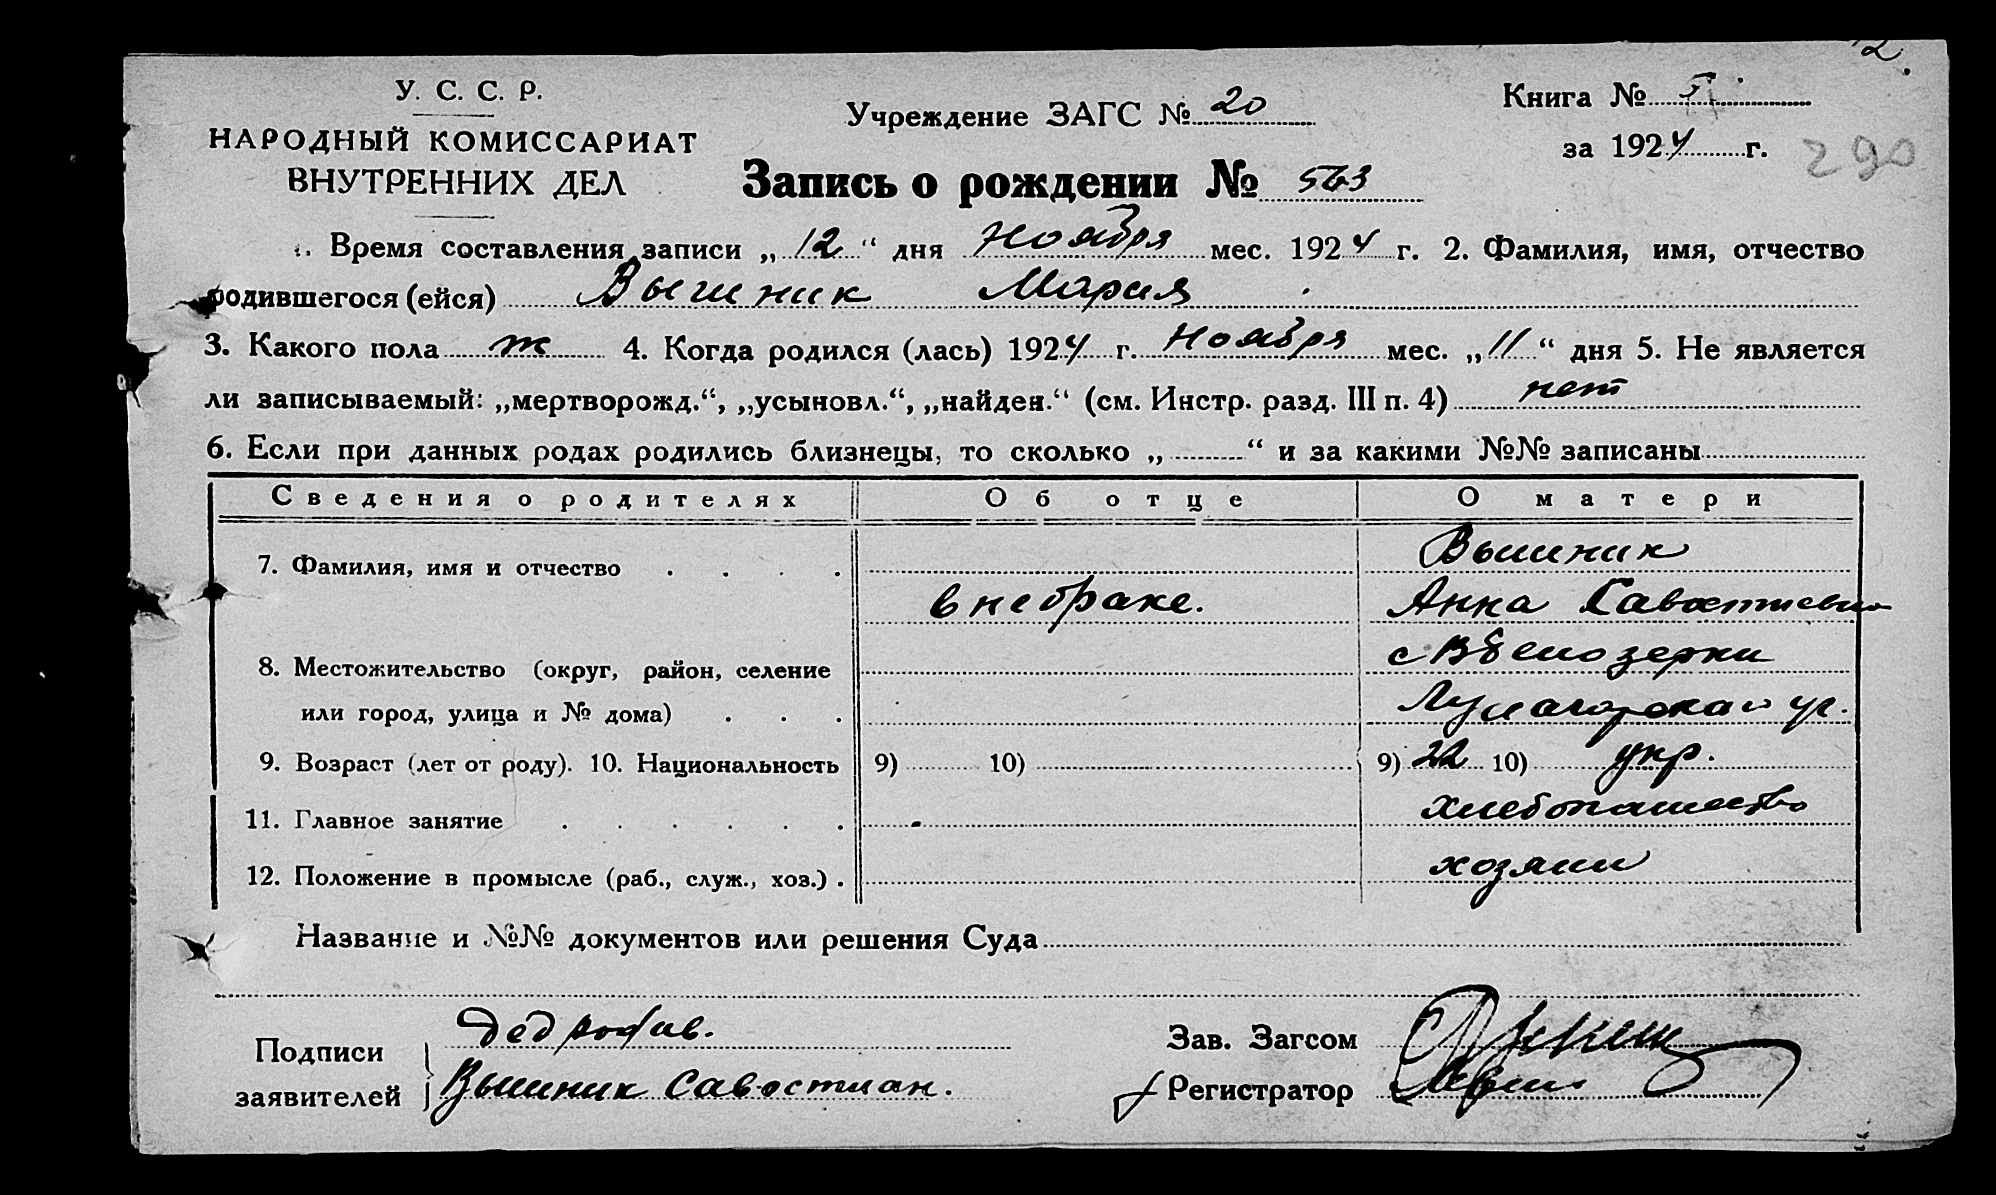 У. С. С. Р.
НАРОДНЫЙ КОМИССАРИАТ
ВНУТРЕННИХ ДЕЛ
Учреждение ЗАГС № 20
Книга №
за 1924 г. 290
Запись о рождении № 563
1. Время составления записи „12“ дня Ноября мес. 1924 г. 2. Фамилия, имя, отчество
родившегося (ейся) Вышник Мария
3. Какого пола ж 4. Когда родился (лась) 1924 г. Ноября мес. „11“ дня 5. Не является
ли записываемый: „мертворожд.“, „усыновл.“, „найден.“ (см. Инстр. разд. III п. 4) нет
6. Если при данных родах родились близнецы, то сколько „ “ и за какими №№ записаны
Сведения о родителях Об отце О матери
7. Фамилия, имя и отчество Вышник
вне браке. Анна
8. Местожительство (округ, район, селение
или город, улица и № дома) ул.
9. Возраст (лет от роду). 10. Национальность 9) 10) 9) 22 10) укр.
11. Главное занятие хлебопашество
12. Положение в промысле (раб., служ., хоз.) хозяин
Название и №№ документов или решения Суда
Подписи дед
заявителей Вышник Савостиан.
Зав. Загсом
Регистратор